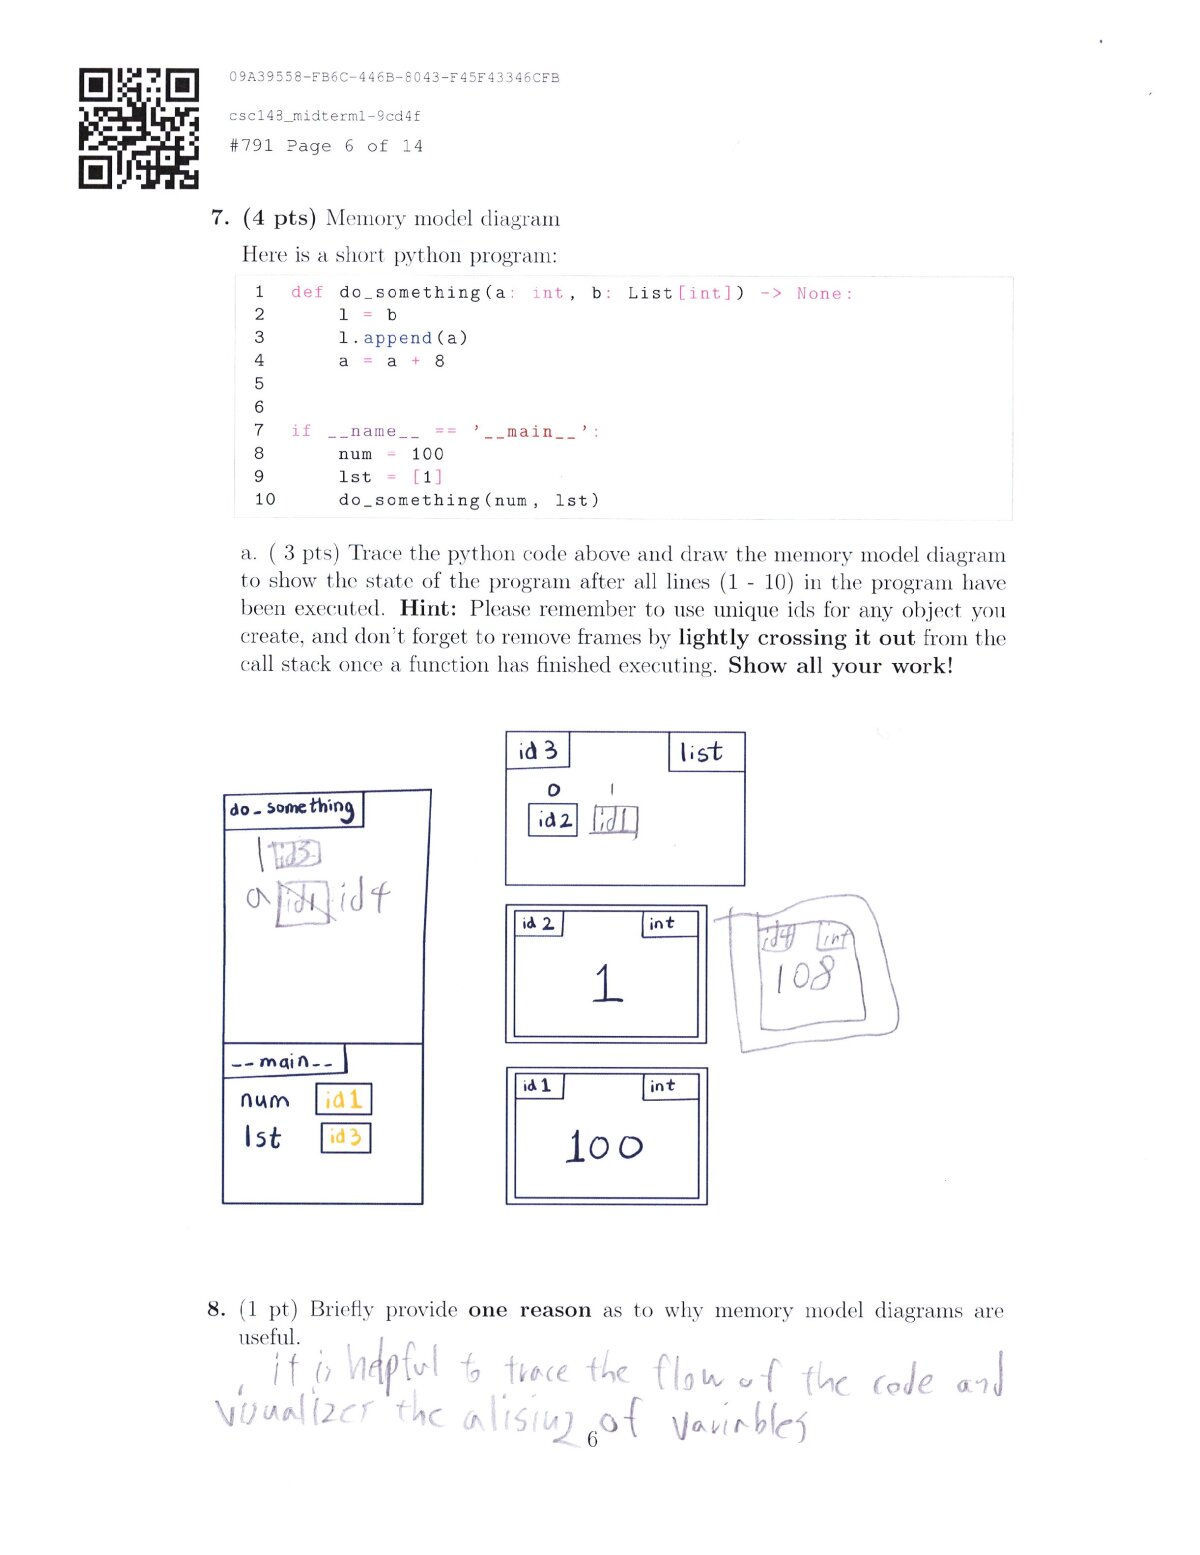 09A39558-FB6C-446B-8043-F45F43346CFB
csc148_midterm1-9cd4f
#791 Page 6 of 14
7. (4 pts) Memory model diagram
Here is a short python program:
1 def do_something(a: int, b: List[int]) -> None:
2 l = b
3 l.append(a)
4 a = a + 8
5
6
7 if __name__ == '__main__':
8 num = 100
9 lst = [1]
10 do_something(num, lst)
a. ( 3 pts) Trace the python code above and draw the memory model diagram
to show the state of the program after all lines (1 - 10) in the program have
been executed. Hint: Please remember to use unique ids for any object you
create, and don't forget to remove frames by lightly crossing it out from the
call stack once a function has finished executing. Show all your work!
id3 list
0 1
id2 id1
do_something
l id3
a id1 id4
id2 int
1
id4 int
108
__main__
num id1
lst id3
id1 int
100
8. (1 pt) Briefly provide one reason as to why memory model diagrams are
useful.
it is helpful to trace the flow of the code and
visualizer the alising of variables
6